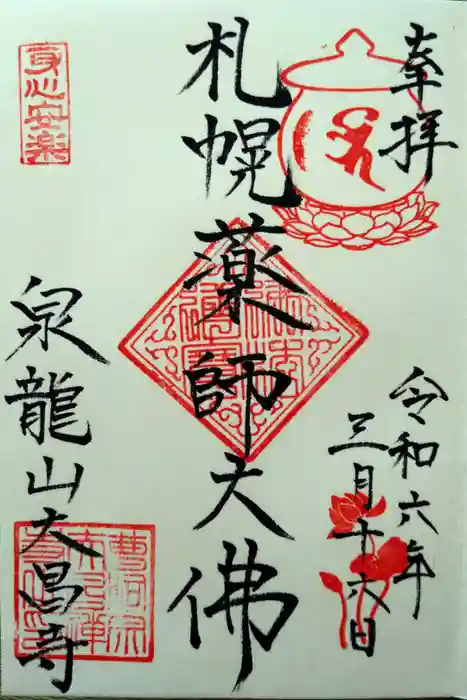 奉拝
令和六年
三月十六日
札幌薬師大佛
身心安楽
泉龍山大昌寺